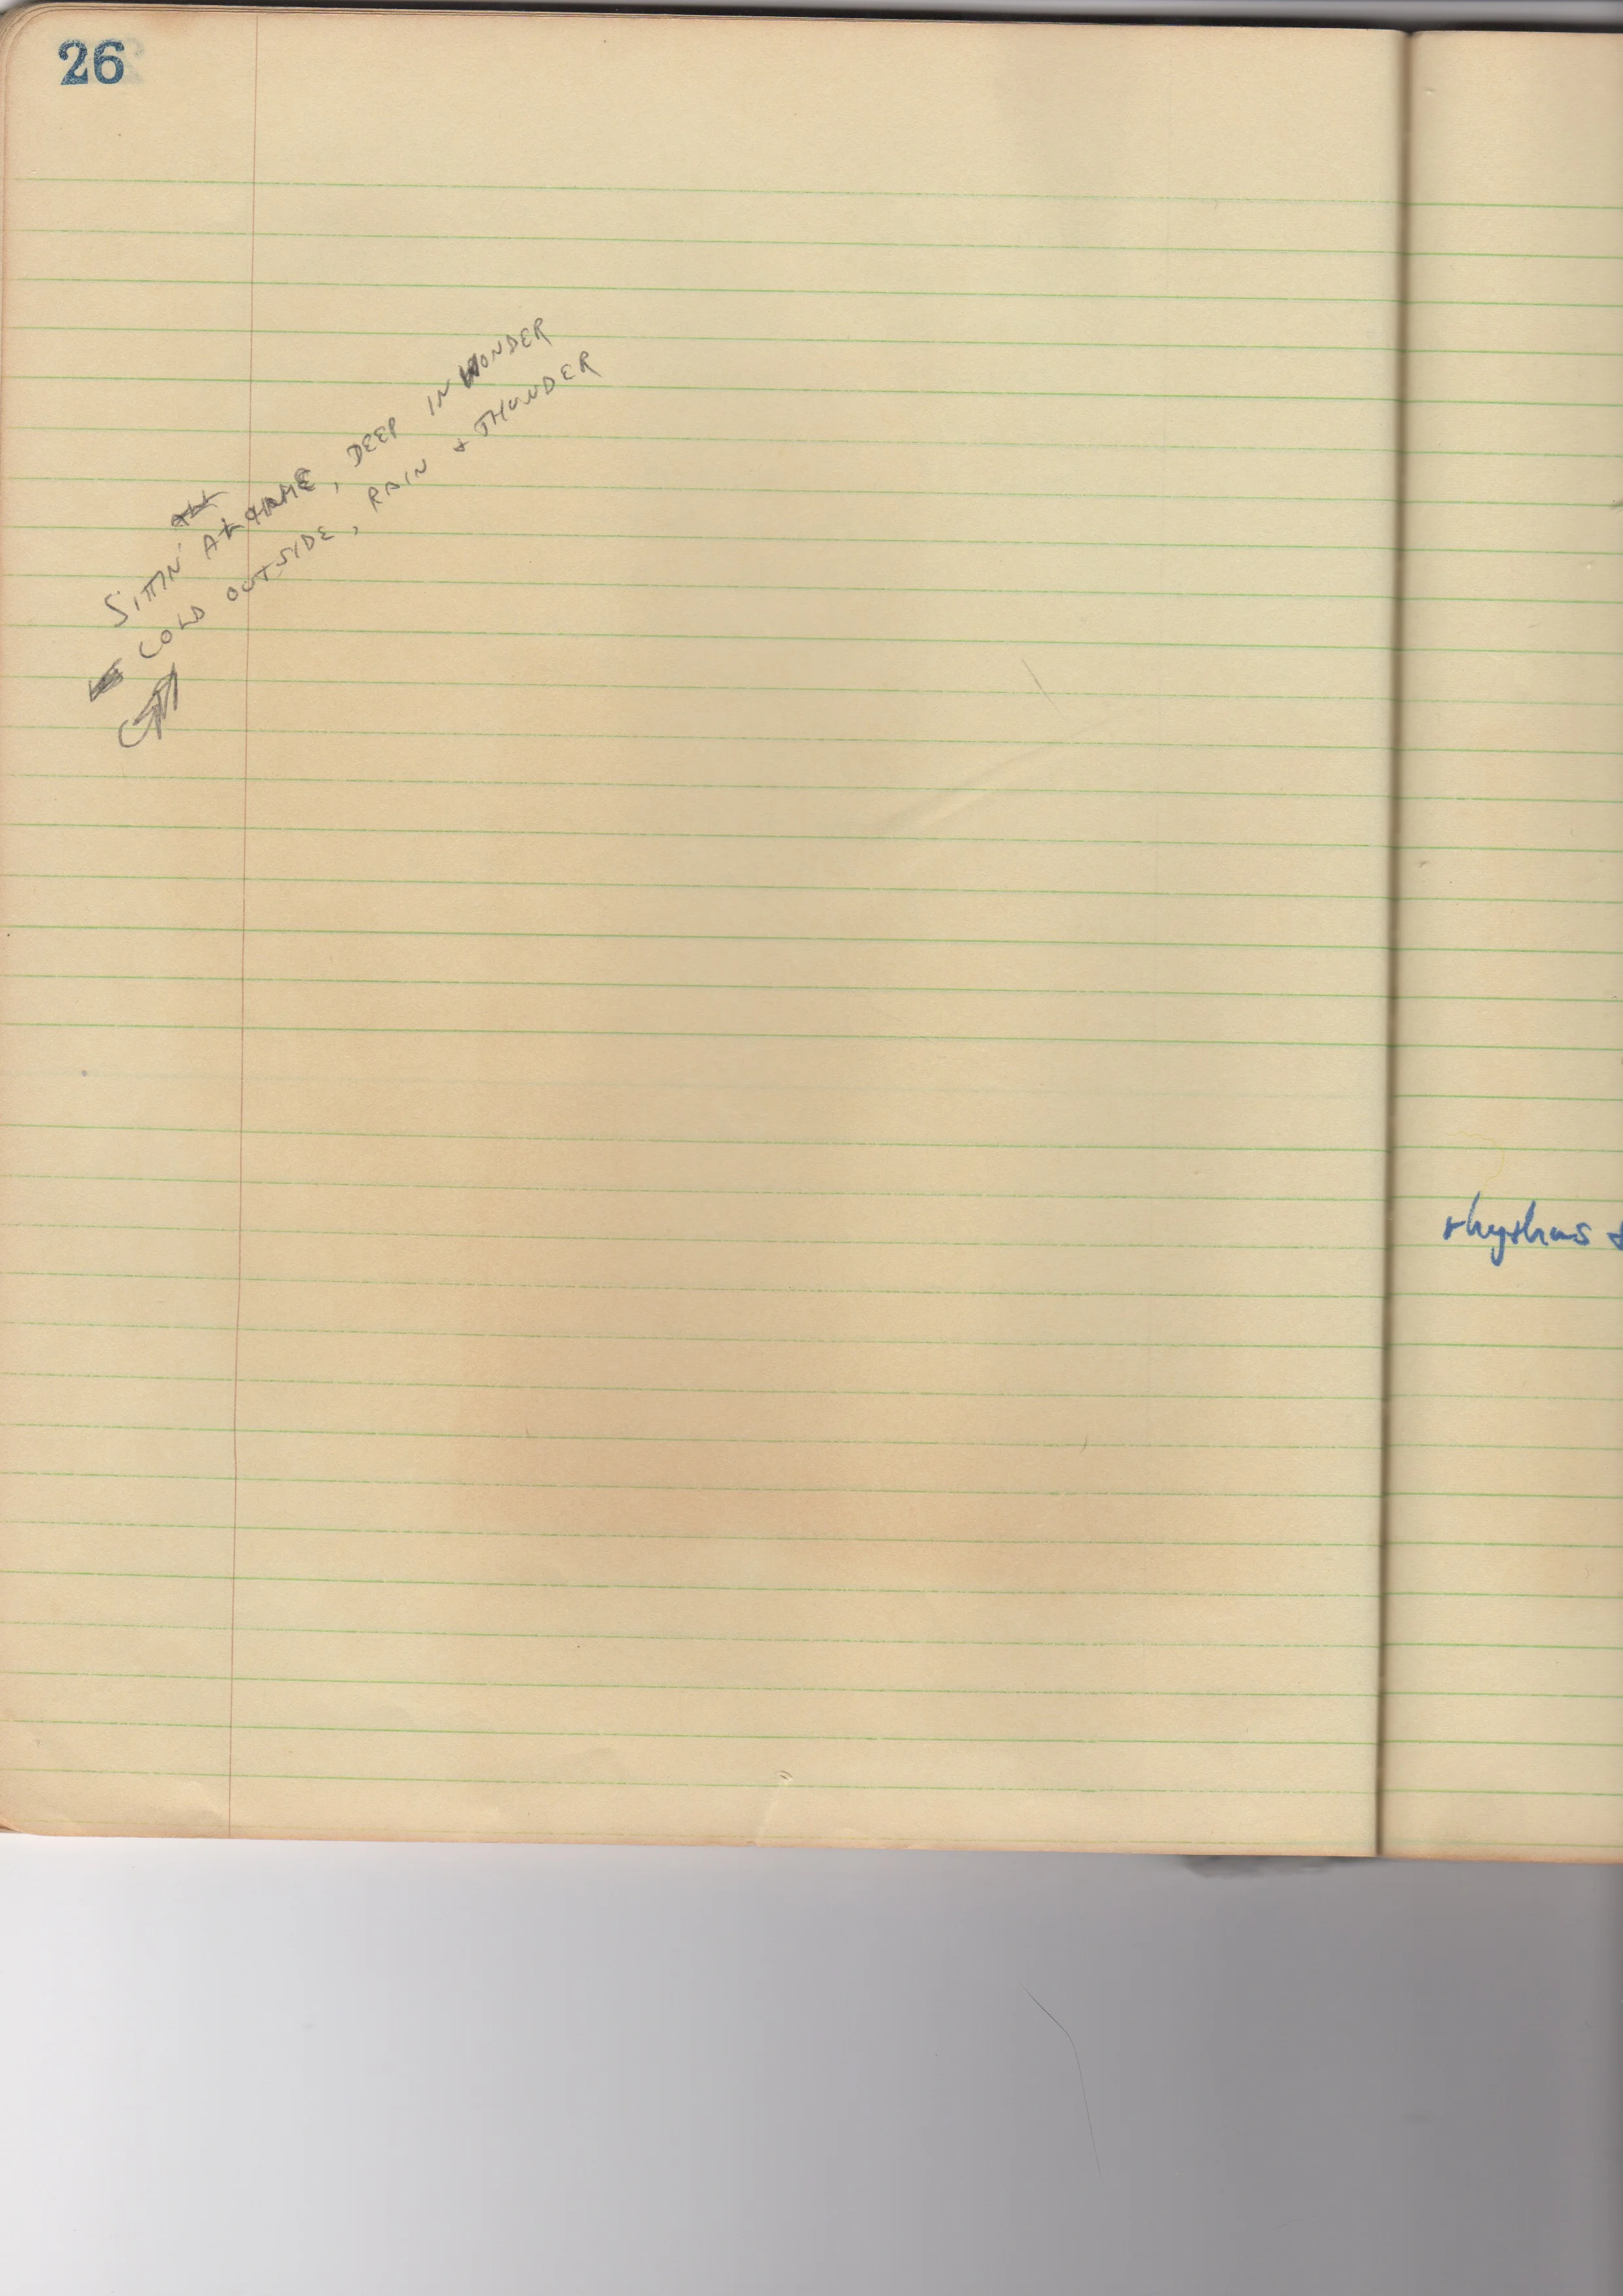 26
SITTIN' AT HOME, DEEP IN WONDER
COLD OUTSIDE, RAIN & THUNDER
rhythms &